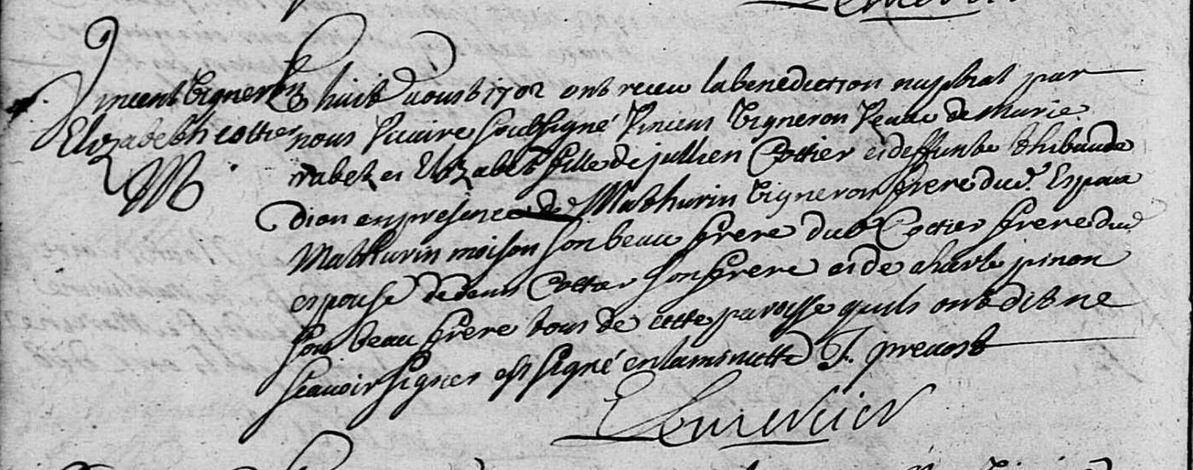 Lemercier
Vincent Vigneron
Elizabeth Cottier
M
Le huict Aoust 1702 ont receu la benediction nuptial par
nous Vicaire soubsigné Vincent Vigneron Veauf de Marie
rabet et Elizabet fille de jullien Cottier et deffunte thibaude
dion en presence de Mathurin Vigneron frere dud. Espoux
Mathurin moison son beau frere dud Cottier frere dud
espouse de denis Cottier son frere et de charle pinon
son beau frere tous de cette paroisse quils ont dit ne
scavoir signer est signé en la minutte J. prevost
Lemercier